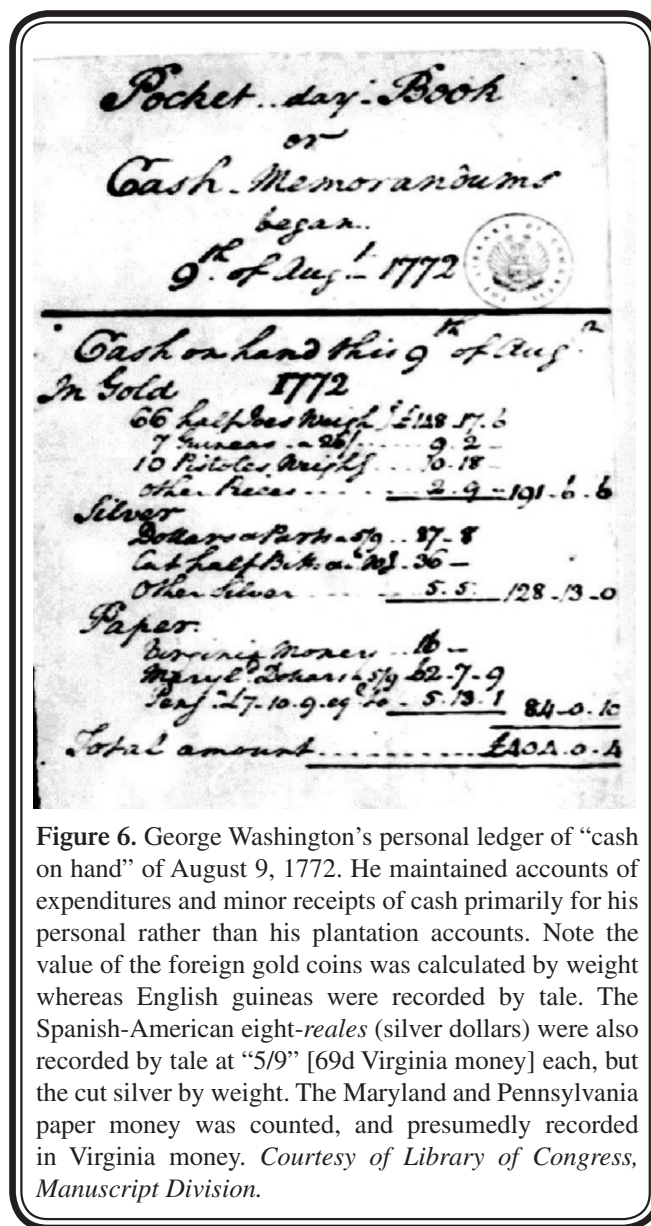 Pocket day Book
or
Cash Memorandums
began
9th of Augt 1772
Cash on hand this 9th of Aug
1772
In Gold
66 half Joes Weigh £148.17.6
7 Guineas a 26/ 9.2
10 Pistoles Weigh 10.18
Other Pieces 2.9 191.6.6
Silver
Dollars & Parts a 5/9 87.8
Cut half Bitts 36
Other Silver 5.5. 128.13.0
Paper.
Virginia Money 16
Maryld Dollars a 5/9 62.7.9
Pensa £7.10.9. eql to 5.13.1 84.0.10
Total amount £404.0.4
Figure 6. George Washington’s personal ledger of “cash
on hand” of August 9, 1772. He maintained accounts of
expenditures and minor receipts of cash primarily for his
personal rather than his plantation accounts. Note the
value of the foreign gold coins was calculated by weight
whereas English guineas were recorded by tale. The
Spanish-American eight-reales (silver dollars) were also
recorded by tale at “5/9” [69d Virginia money] each, but
the cut silver by weight. The Maryland and Pennsylvania
paper money was counted, and presumedly recorded
in Virginia money. Courtesy of Library of Congress,
Manuscript Division.